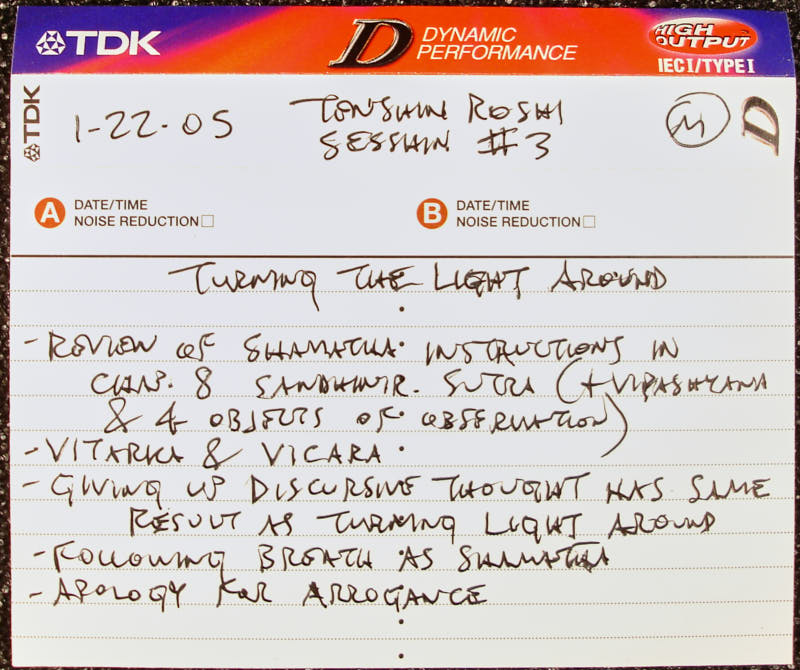 TDK D DYNAMIC PERFORMANCE HIGH OUTPUT
IECI/TYPE I
TDK 1-22-05 TENSHIN ROSHI M D
SESSHIN #3
A DATE/TIME
NOISE REDUCTION
B DATE/TIME
NOISE REDUCTION
TURNING THE LIGHT AROUND
- REVIEW OF SHAMATHA INSTRUCTIONS IN
CHAP. 8 SANDHINIR. SUTRA (+ VIPASHYANA
& 4 OBJECTS OF OBSERVATION)
- VITARKA & VICARA
- GIVING UP DISCURSIVE THOUGHT HAS SAME
RESULT AS TURNING LIGHT AROUND
- FOLLOWING BREATH AS SHAMATHA
- APOLOGY FOR ARROGANCE